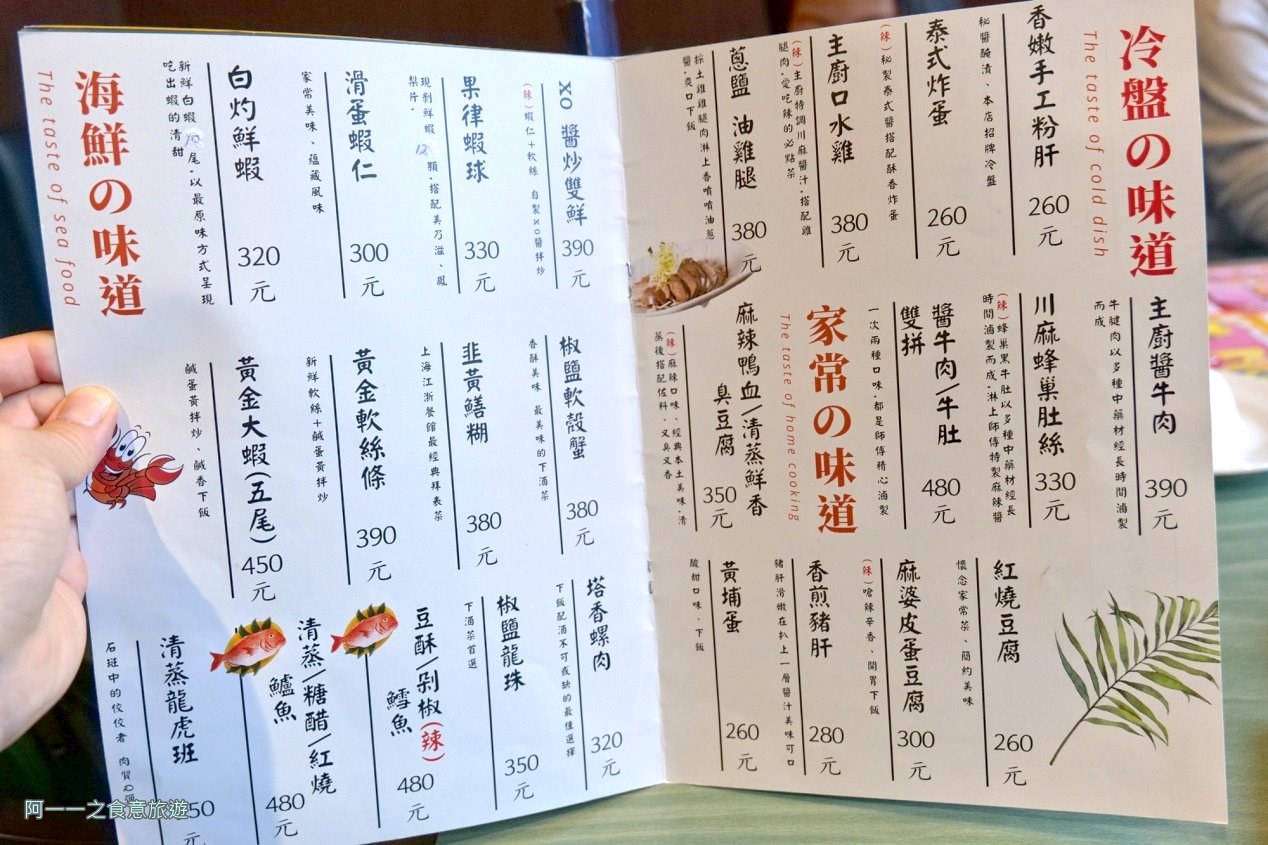 冷盤の味道
The taste of cold dish
香嫩手工粉肝
260元
秘醬醃漬、本店招牌冷盤
泰式炸蛋
260元
(辣)秘製泰式醬搭配酥香炸蛋
主廚口水雞
380元
(辣)主廚特調川麻醬汁,搭配雞
腿肉,愛吃辣的必點菜
蔥鹽 油雞腿
380元
採土雞雞腿肉淋上香噴噴油蔥
醬,爽口下飯
主廚醬牛肉
390元
牛腱肉以多種中藥材經長時間滷製
而成
川麻蜂巢肚絲
330元
(辣)蜂巢黑牛肚以多種中藥材經長
時間滷製而成,淋上師傅特製麻辣醬
醬牛肉/牛肚
雙拼
480元
一次兩種口味,都是師傅精心滷製
家常の味道
The taste of home cooking
麻辣鴨血/清蒸鮮香
臭豆腐
350元
(辣)麻辣口味、經典本土美味,清
蒸後搭配佐料、又臭又香
紅燒豆腐
260元
懷念家常菜、簡約美味
麻婆皮蛋豆腐
300元
(辣)嗆辣辛香、開胃下飯
香煎豬肝
280元
豬肝滑嫩在扒上一層醬汁美味可口
黃埔蛋
260元
酸甜口味、下飯
海鮮の味道
The taste of sea food
白灼鮮蝦
320元
新鮮白蝦10尾,以最原味方式呈現
吃出蝦的清甜
滑蛋蝦仁
300元
家常美味、蘊藏風味
果律蝦球
330元
現剝鮮蝦12顆,搭配美乃滋、鳳
梨片.
XO醬炒雙鮮
390元
(辣)蝦仁+軟絲 自製XO醬拌炒
黃金大蝦(五尾)
450元
鹹蛋黃拌炒、鹹香下飯
黃金軟絲條
390元
新鮮軟絲+鹹蛋黃拌炒
韭黃鱔糊
380元
上海江浙餐館最經典拜表菜
椒鹽軟殼蟹
380元
香酥美味 最美味的下酒菜
清蒸龍虎斑
50元
石斑中的佼佼者 肉質
清蒸/糖醋/紅燒
鱸魚
480元
豆酥/剁椒(辣)
鱈魚
480元
椒鹽龍珠
350元
下酒菜首選
塔香螺肉
320元
下飯配酒不可或缺的最佳選擇
阿一一之食意旅遊